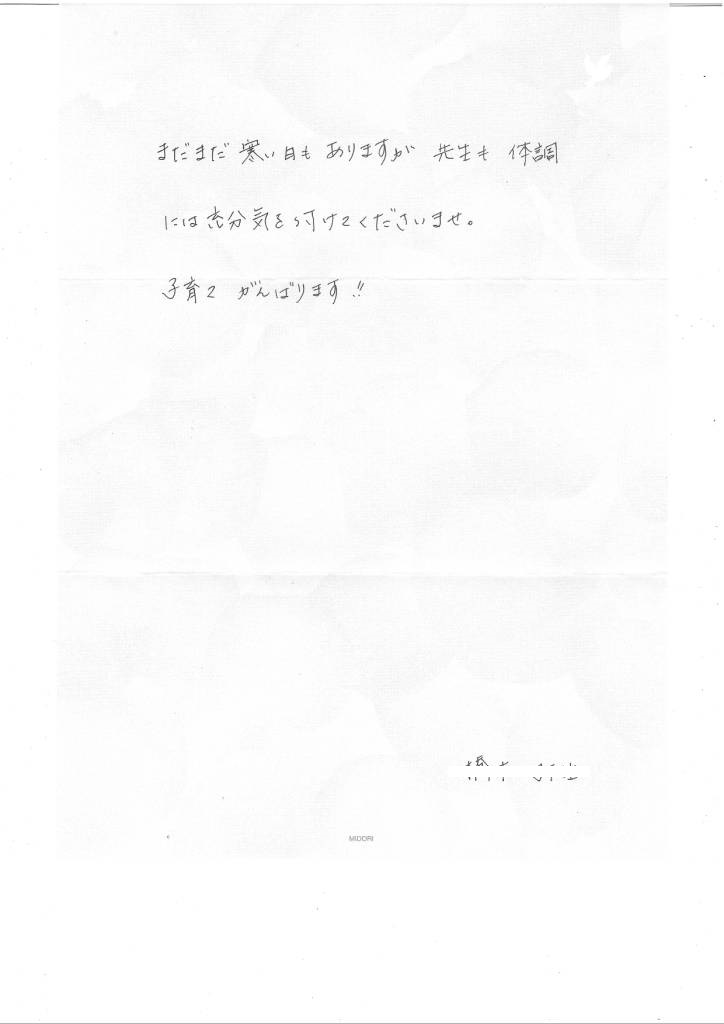 まだまだ寒い日もありますが 先生も 体調
には充分気を付けてくださいませ。
子育て がんばります!!
MIDORI